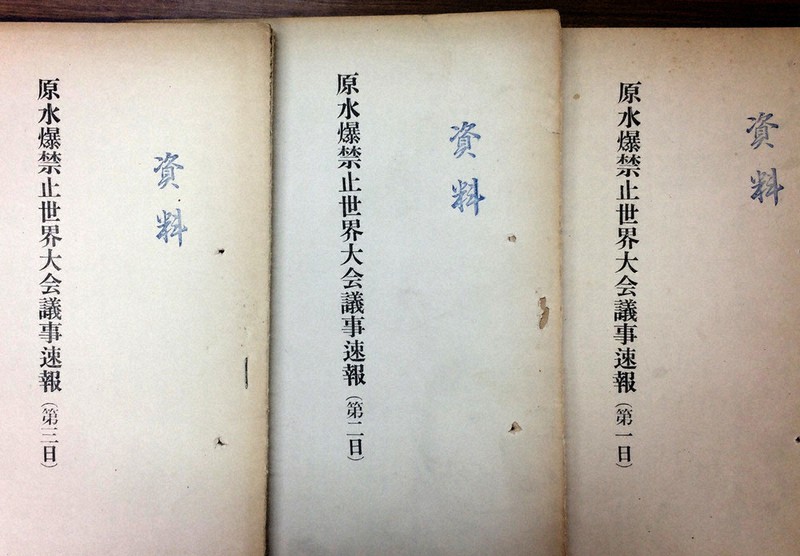 資料
原水爆禁止世界大会議事速報(第一日)
資料
原水爆禁止世界大会議事速報(第二日)
資料
原水爆禁止世界大会議事速報(第三日)